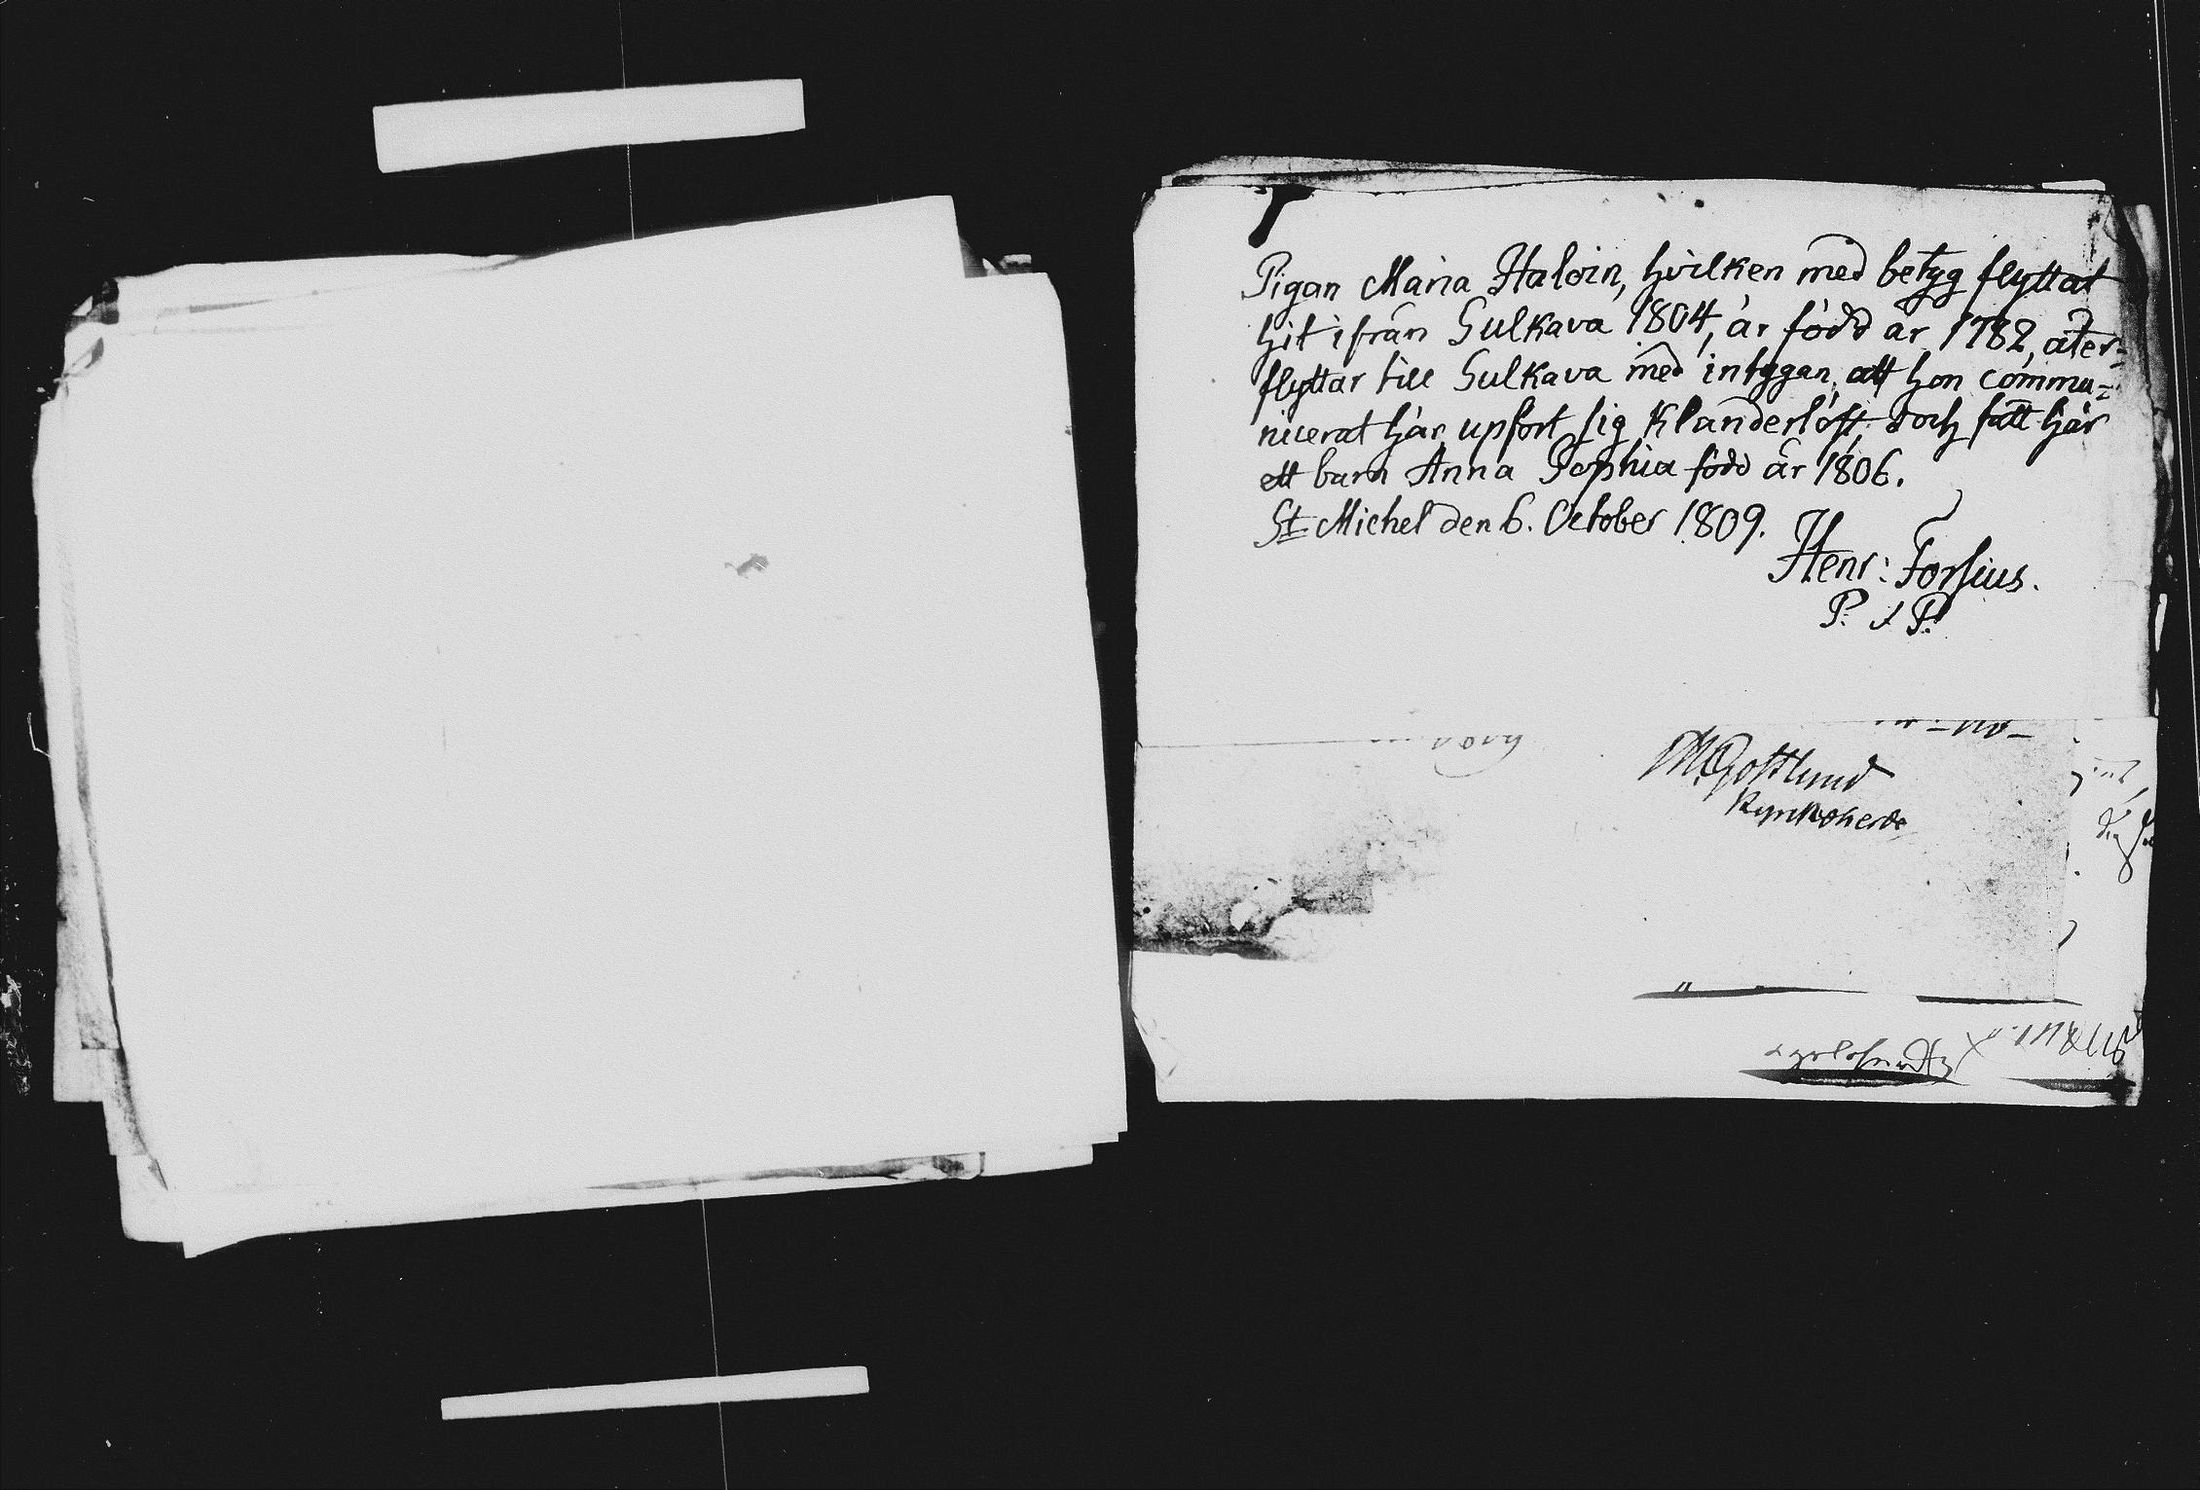 Pigan Maria Haloin, hvilken med betyg flyttat
hit ifrån Sulkava 1804, är född år 1782, åter-
flyttar till Sulkava med intygan, att hon commu-
nicerat här, upfört sig klanderlöst, doch fått här
ett barn Anna Sophia född år 1806.
St Michel den 6. October 1809.
Henr: Forsius.
P. & P.
M Gottlund
Kyrkoherde